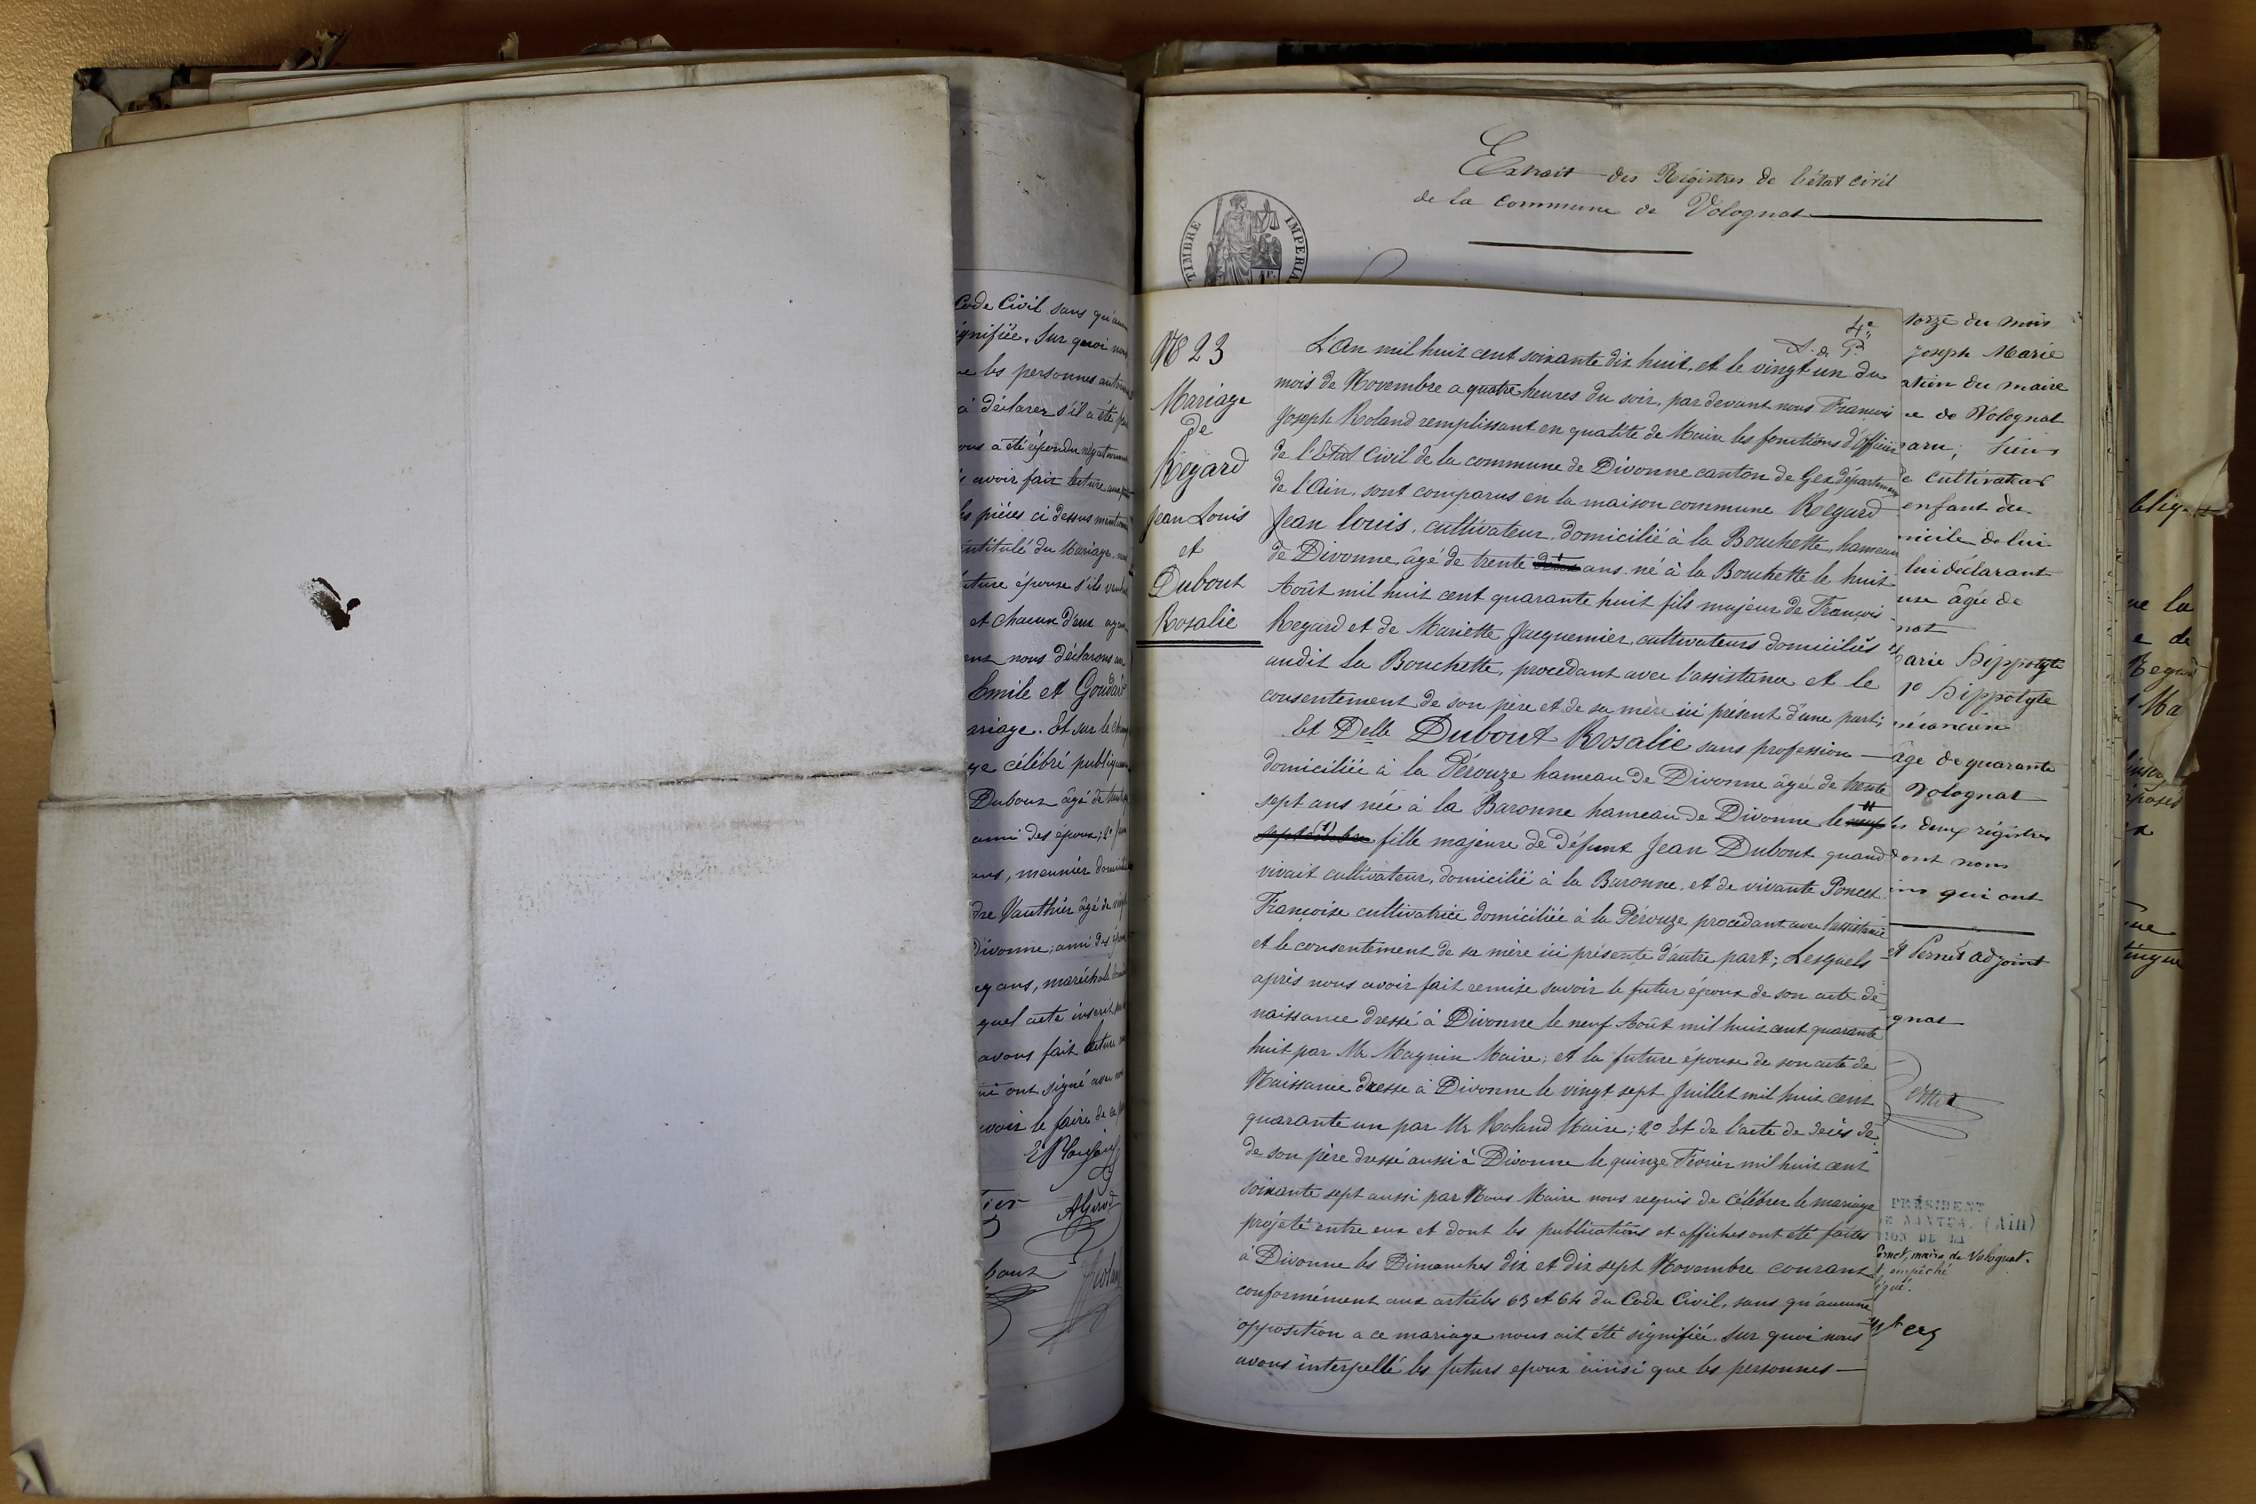 Code Civil sans qu'
ignifiée. Sur quoi nous
les personnes
à déclarer s'il a été
ous a été répondu négativement
avoir fait lecture aux
les pièces ci dessus
intitulé du Mariage
uture épouse s'ils
et chacun d'eux
nous déclarons au
Emile et Goudard
ariage. Et sur le champ
célébré publiquement
Dubout âgé de
ami des époux; 2°
ans, meunier
dre Vauthier âgé de
Divonne; ami des
ans, maréchal
quel acte inscrit
avons fait lecture
ont signé avec nous
avoir le faire de ce
Extrait des Régistres de l'état civil
de la commune de Volognat
TIMBRE IMPERIA
4e
N° 23
Mariage
de
Regard
Jean Louis
et
Dubout
Rosalie
L'An mil huit cent soixante dix huit, et le vingt un du
mois de Novembre a quatre heures du soir, par devant nous François
Joseph Roland remplissant en qualité de Maire les fonctions d'officier
de l'Etat Civil de la commune de Divonne canton de Gex département
de l'Ain, sont comparus en la maison commune Regard
Jean Louis, cultivateur, domicilié à la Bouchette, hameau
de Divonne, âgé de trente ans né à la Bouchette le huit
Août mil huit cent quarante huit fils majeur de François
Regard et de Mariette Jacquemier, cultivateurs domiciliés
audit La Bouchette, procédant avec l'assistance et le
consentement de son père et de sa mère ici présent d'une part;
Et Delle Dubout Rosalie sans profession
domiciliée à la Pérouze hameau de Divonne âgée de trente
sept ans née à la Baronne hameau de Divonne le neuf
septembre (1) fille majeure de défunt Jean Dubout quand
vivait cultivateur, domicilié à la Baronne, et de vivante Poncet
Françoise cultivatrice domiciliée à la Pérouze procédant avec l'assistance
et le consentement de sa mère ici présente d'autre part; Lesquels
après nous avoir fait remise savoir le futur époux de son acte de
naissance dressé à Divonne le neuf Août mil huit cent quarante
huit par Mr Magnin Maire; et la future épouse de son acte de
Naissance dressé à Divonne le vingt sept Juillet mil huit cent
quarante un par Mr Roland Maire; 2° Et de l'acte de décès de
de son père dressé aussi à Divonne le quinze Février mil huit cent
soixante sept aussi par Nous Maire nous requis de célébrer le mariage
projeté entre eux et dont les publications et affiches ont été faites
à Divonne les Dimanches dix et dix sept Novembre courant
conformément aux articles 63 et 64 du Code Civil, sans qu'aucune
opposition a ce mariage nous ait été signifiée, sur quoi nous
avons interpellé les futurs epoux ainsi que les personnes
torze du mois
Joseph Marie
ation du maire
e de Volognat
cultivateur
enfant du
micile de lui
lui déclarant
âgée de
nat
arie Hippolyte
Hippolyte
âgé de quarante
Volognat
deux régistres
dont nous
ins qui ont
Pernet adjoint
gnat
PRÉSIDENT
DE NANTUA (Ain)
ION DE LA
maire de Volognat.
empêché
Regard